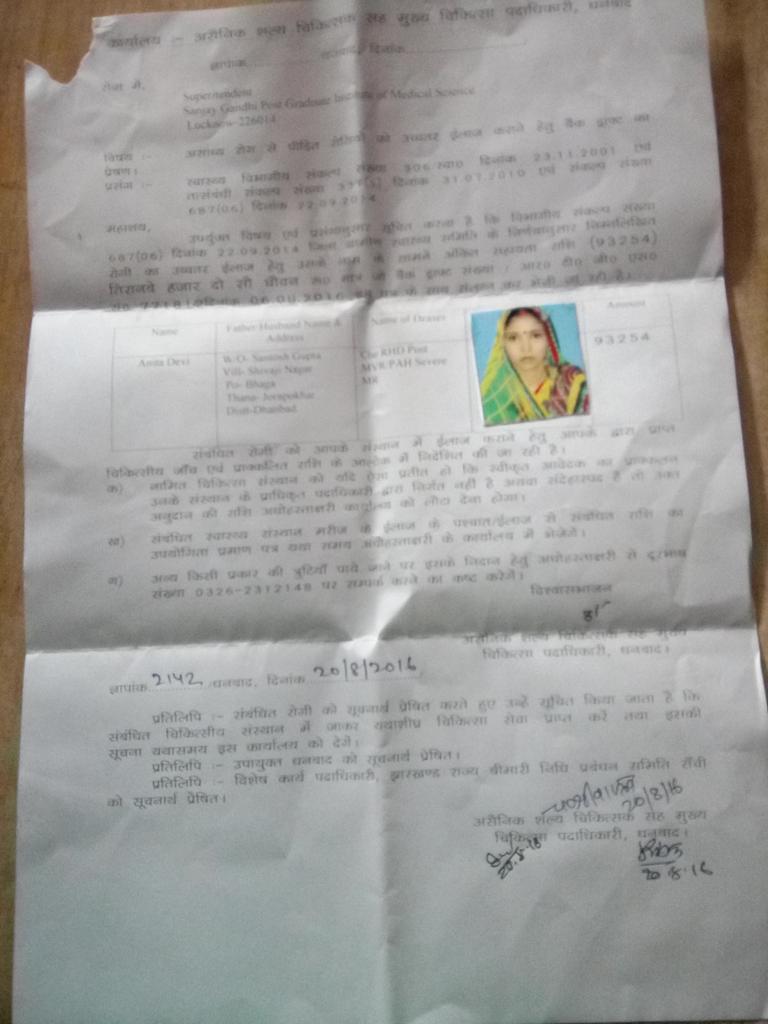 कार्यालय :- असैनिक शल्य चिकित्सक सह मुख्य चिकित्सा पदाधिकारी, धनबाद
ज्ञापांक.................... धनबाद, दिनांक....................
सेवा में,
Superntendent
Sanjay Gandhi Post Graduate Institute of Medical Science
Lucknow-226014
विषय :- असाध्य रोग से पीड़ित रोगियों को उच्चतर ईलाज कराने हेतु बैंक ड्राफ्ट का
प्रेषण।
प्रसंग :- स्वास्थ्य विभागीय संकल्प संख्या 306 स्वा0 दिनांक 23.11.2001 एवं
तत्संबंधी संकल्प संख्या दिनांक 31.07.2010 एवं संकल्प संख्या
687(06) दिनांक 22.09.2014
महाशय,
उपर्युक्त विषय एवं प्रसंगानुसार सूचित करना है कि विभागीय संकल्प संख्या
687(06) दिनांक 22.09.2014 जिला ग्रामीण स्वास्थ्य समिति के निर्णयानुसार निम्नलिखित
रोगी का उच्चतर ईलाज हेतु उसके नाम के सामने अंकित सहायता राशि (93254)
तिरानवे हजार दो सौ चौवन रू0 मात्र जो बैंक ड्राफ्ट संख्या / आर0 टी0 जी0 एस0
पत्र के साथ संलग्न कर भेजी जा रही है।
Name Father/Husband Name & Address Name of Dieases Amount
Anita Devi W/O- Santosh Gupta Che RHD Post 93254
Vill- Shivaji Nagar MVR/PAH Severe
Po- Bhaga MR
Thana- Jorapokhar
Distt-Dhanbad
संबंधित रोगी को आपके संस्थान में ईलाज कराने हेतु आपके द्वारा प्राप्त
चिकित्सीय जाँच एवं प्राक्कलित राशि के आलोक में निदेशित की जा रही है।
क) नामित चिकित्सा संस्थान को यदि ऐसा प्रतीत हो कि स्वीकृत आवेदक का प्राक्कलन
उनके संस्थान के प्राधिकृत पदाधिकारी द्वारा निर्गत नहीं है अथवा संदेहास्पद है तो उक्त
अनुदान की राशि अधोहस्ताक्षरी कार्यालय को लौटा देना होगा।
ख) संबंधित स्वास्थ्य संस्थान मरीज के ईलाज के पश्चात/ईलाज से संबंधित राशि का
उपयोगिता प्रमाण पत्र यथा समय अधोहस्ताक्षरी के कार्यालय में भेजेंगे।
ग) अन्य किसी प्रकार की त्रुटियाँ पाये जाने पर इसके निदान हेतु अधोहस्ताक्षरी से दूरभाष
संख्या 0326-2312148 पर सम्पर्क करने का कष्ट करेंगे।
विश्वासभाजन
असैनिक शल्य चिकित्सक सह मुख्य
चिकित्सा पदाधिकारी, धनबाद।
ज्ञापांक...2142.../धनबाद, दिनांक...20/8/2016
प्रतिलिपि :- संबंधित रोगी को सूचनार्थ प्रेषित करते हुए उन्हें सूचित किया जाता है कि
संबंधित चिकित्सीय संस्थान में जाकर यथाशीघ्र चिकित्सा सेवा प्राप्त करें तथा इसकी
सूचना यथासमय इस कार्यालय को देंगे।
प्रतिलिपि :- उपायुक्त धनबाद को सूचनार्थ प्रेषित।
प्रतिलिपि :- विशेष कार्य पदाधिकारी, झारखण्ड राज्य बीमारी निधि प्रबंधन समिति राँची
को सूचनार्थ प्रेषित।
20/8/16
असैनिक शल्य चिकित्सक सह मुख्य
चिकित्सा पदाधिकारी, धनबाद।
20.8.16
20.8.16